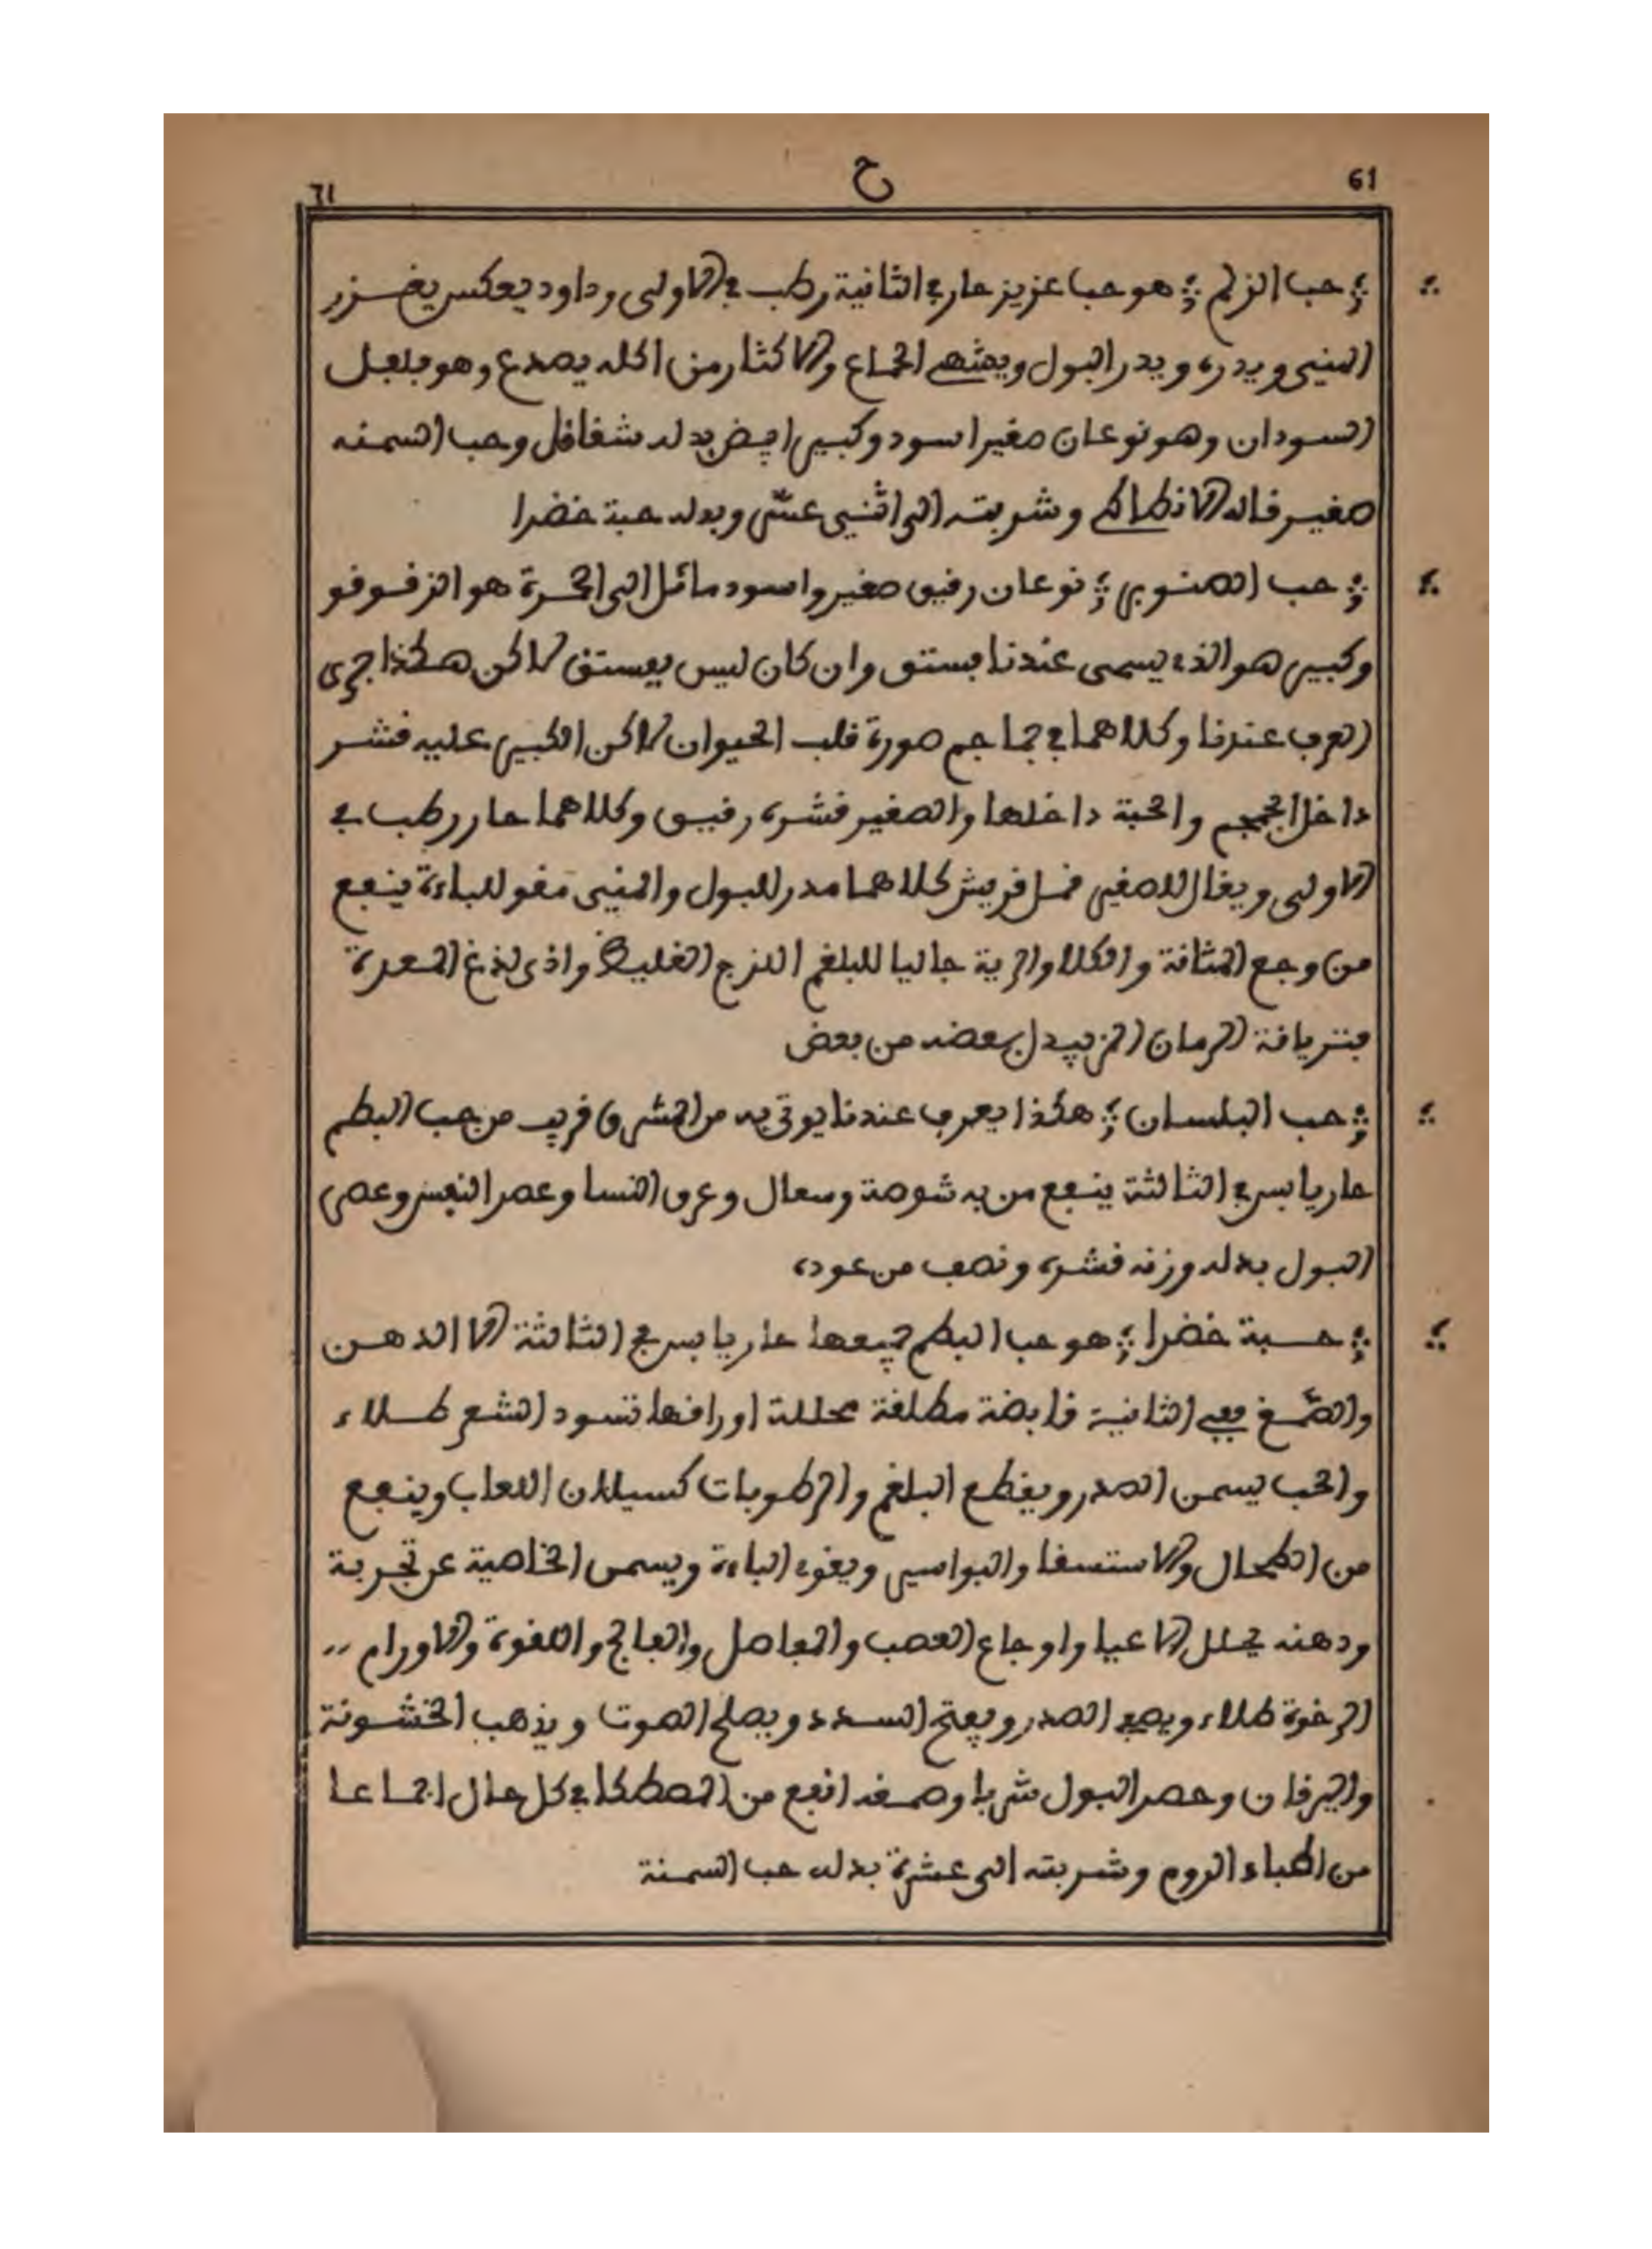 61
ح
61
حب الزلم هو حب عزيز حار في الثانية رطب في الاولى وداود يعكس يغزر
المني ويدره ويدر البول ويشهي الجماع والاكثار من اكله يصدع وهو فلفل
السودان وهو نوعان صغير اسود وكبير ابيض بدله شقاقل وحب السمنه
صغير قاله الانطاكي وشربته الى اثني عشر وبدله حبة خضرا
حب الصنوبر نوعان رقيق صغير واسود مائل الى الحمرة هو الزقوقو
وكبير هو الذي يسمى عندنا بستق وان كان ليس بفستق لاكن هكذا جرى
العرف عندنا وكلاهما في جماجم صورة قلب الحيوان لاكن الكبير عليه قشر
داخل الجمجم والحبة داخلها والصغير قشره رقيق وكلاهما حار رطب في
الاولى ويقال للصغير قمل قريش كلاهما مدر للبول والمني مقو للباءة ينفع
من وجع المثانة والكلا والرية جاليا للبلغم اللزج الغليظ واذى لذغ المعدة
فترياقة الرمان المز يبدل بعضه من بعض
حب البلسان هكذا يعرف عندنا يوتى به من المشرق قريب من حب البطم
حار يابس في الثالثة ينفع من به شوصة وسعال وعرق النسا وعصر النفس وعصر
البول بدله وزنه قشره ونصف من عوده
حبة خضرا هو حب البطم جميعها حار يابس في الثالثة الا الدهن
والصمغ ففي الثانية قابضة مطلقة محللة اوراقها تسود الشعر طلاء
والحب يسمن الصدر ويقطع البلغم والرطوبات كسيلان اللعاب وينفع
من الطحال والاستسقا والبواسير ويقوي الباءة ويسمن الخاصية عن تجربة
ودهنه يحلل الاعيا واوجاع العصب والمفاصل والفالج واللقوة والاورام
الرخوة طلاء ويصفي الصدر ويفتح السدد ويصلح الصوت ويذهب الخشونة
واليرقان وحصر البول شربا وصمغه انفع من المصطكا في كل حال اجماعا
من اطباء الروم وشربته الى عشرة بدله حب السمنة